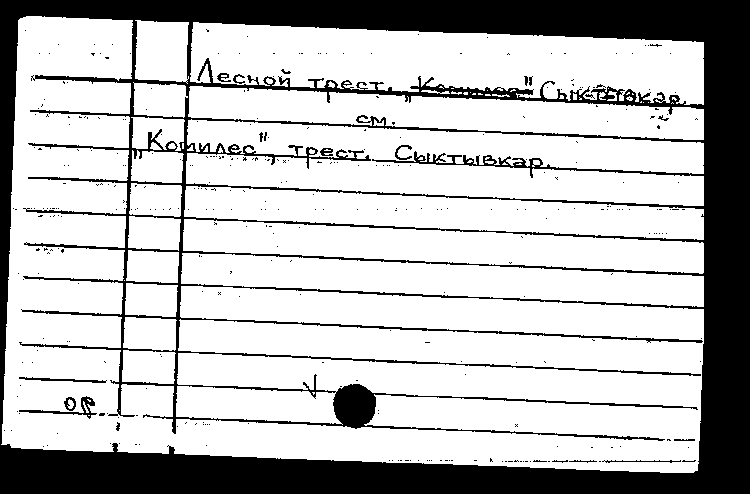 Лесной трест. „Комилес" Сыктывкар.
см.
„Комилес", трест. Сыктывкар.
ор